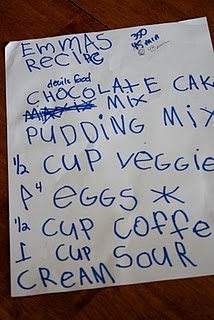 EMMAS
RECIPE
350
45 MIN
devils food
CHOCOLATE CAK
MIX
PUDDING MIX
1/2 CUP VEGGIE
4 EGGS *
1/2 CUP COFFE
1 CUP SOUR
CREAM